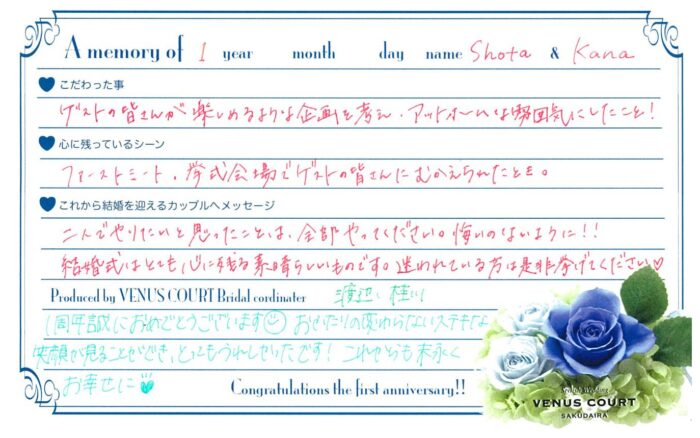 A memory of 1 year month day name Shota & Kana
こだわった事
ゲストの皆さんが楽しめるような企画を考え、アットホームな雰囲気にしたこと！
心に残っているシーン
ファーストミート、挙式会場でゲストの皆さんにむかえられたとき。
これから結婚を迎えるカップルへメッセージ
二人でやりたいと思ったことは、全部やってください。悔いのないように！！
結婚式はとても心に残る素晴らしいものです。迷われている方は是非挙げてください♡
Produced by VENUS COURT Bridal cordinater 渡辺・桂川
1周年誠におめでとうございます☺ お2人の変わらないステキな
笑顔が見ることができ、とてもうれしかったです！ これからも末永く
お幸せに♥
Congratulations the first anniversary!!
VENUS COURT
SAKUDAIRA